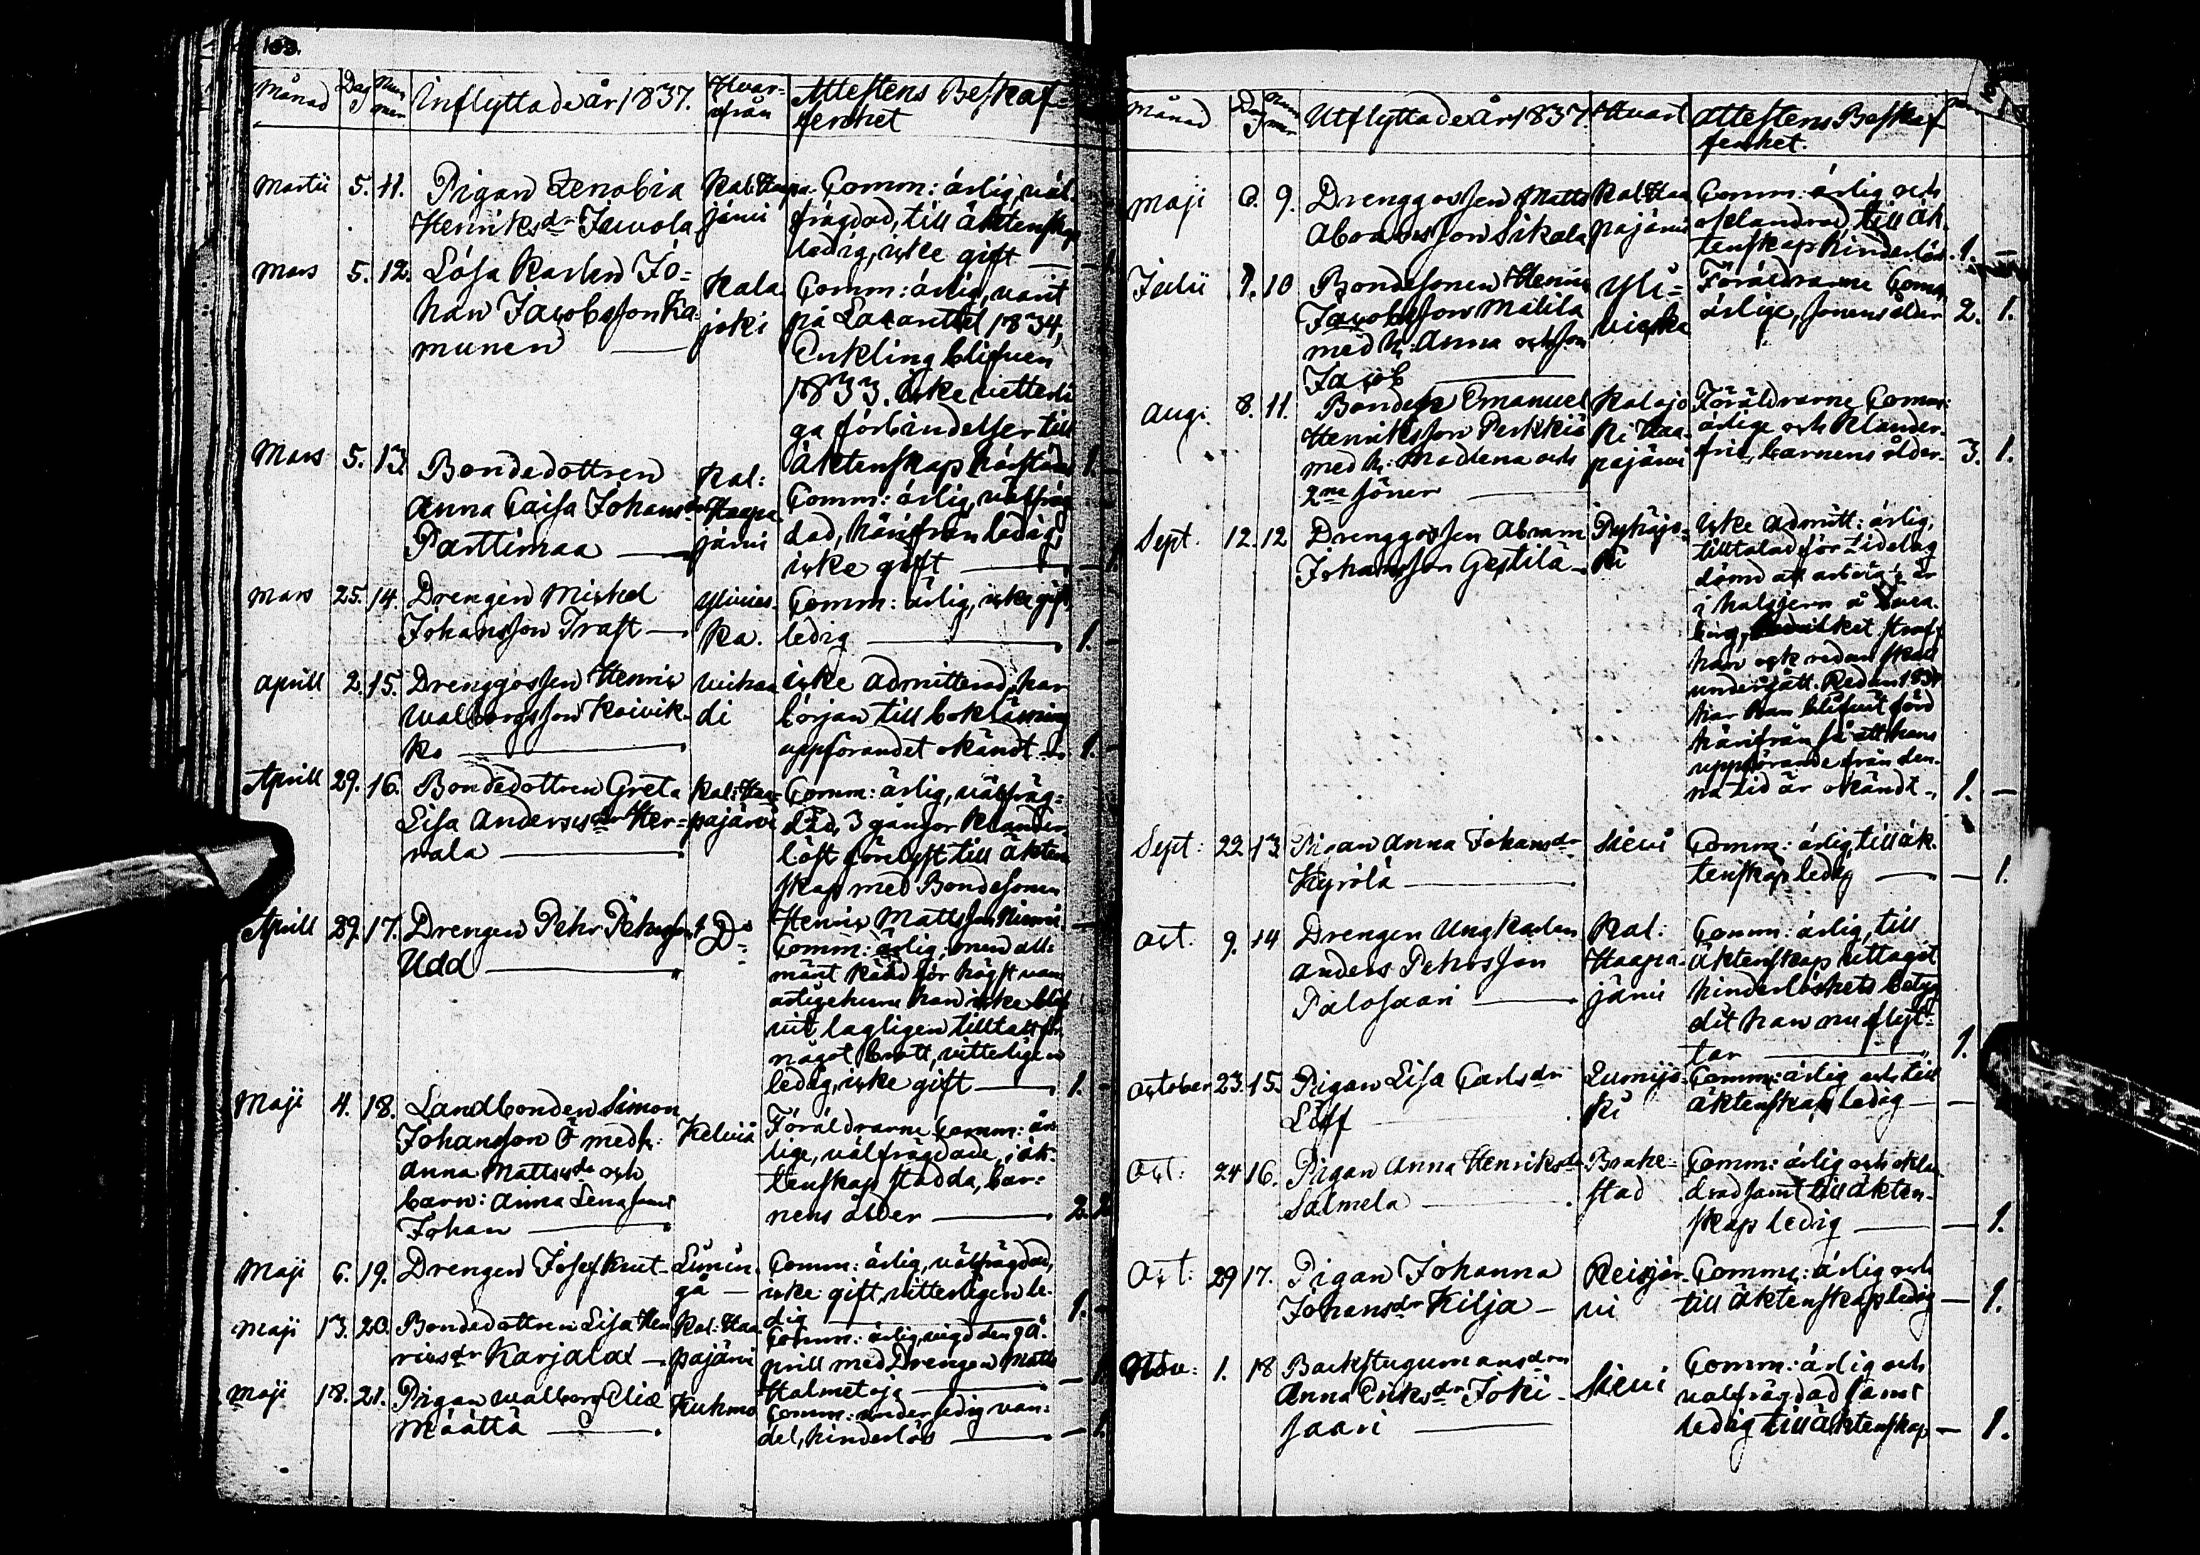 Månad Dag Num mer Inflyttade år 1837. Hvar=
ifrån Attestens Beskaf=
fenhet
Martii 5. 11. Pigan Zenobia
Henriksdr Jawola
Kal: Haapa
järvi
Comm: ärlig, väl
frägdad, till äktenskap
ledig, icke gift — 1.
Mars 5. 12. Lösa Karlen Jo=
han Jacobsson Ka
munen —
Kala
joki
Comm: ärlig, varit
på Lazarettet 1834,
Enkling blifven
1833. Icke vetterli
ga förbindelser till
äktenskap härstädes 1. —
Mars 5. 13. Bondedottren
Anna Caisa Johansdr
Parttimaa —
Kal:
Haapa
järvi
Comm: ärlig, välfräg
dad, härifrån ledig,
icke gift — 1
Mars 25. 14. Drengen Mickel
Johansson Trast —
Ylivies-
ka.
Comm: ärlig, icke gift,
ledig — 1. —
Aprill 2. 15. Drenggossen Henric
Walborgsson Koivik-
ko —
Vihan
di
icke admitterad, har
början till bokläsning
uppförandet okändt — 1. —
Aprill 29. 16. Bondedottren Greta
Lisa Andersdr Her=
rala —
Kal: Haa=
pajärvi
Comm: ärlig, välfräg=
dad, 3 gångor klander
löst förelyst till äkten
skap med Bondesonen
Henric Mattsson Niemi
Aprill 29. 17. Drengen Pehr Pehrsson
Udd —
Do
Comm: ärlig, men all=
mänt känd för högst van
artig ehuru han icke blif
vit lagligen tilltalt för
något brott, vitterligen
ledig, icke gift — 1. —
Maji 4. 18. Landbonden Simon
Johansson Ö med h:
Anna Mattsdr och
barn: Anna Lena samt
Johan —
Kelviå
Föräldrarne Comm: är
lige, välfrägdade, i äk-
tenskap stadda, bar=
nens ålder — 2. 2
Maji 6. 19. Drengen Josef Knut —
Limin
gå —
Comm: ärlig, välfrägdad,
icke gift, vitterligen le-
dig — 1. —
Maji 13. 20. Bondedottren Lisa Hen
ricsdr Karjalax —
Kal: Haa
pajärvi
Comm: ärlig, vigd den 9 A-
prill med Drengen Matts
Halmetoja — 1
Maji 18. 21. Pigan Walborg Eliæ
Määttä —
Kuhmo
Comm: anderledig van=
del, hinderlös — 1.
Månad Dag Num mer Utflyttade år 1837 Hvart Attestens Beskaf
fenhet.
Maji 6. 9. Drenggossen Matts
Abramsson Sikala
Kal: Haa
pajärvi
Comm: ärlig och
oklandrad, till äk
tenskap hinderlös. 1. —
Julii 9. 10 Bondesonen Henric
Jacobsson Mätilä
med h: Anna och son
Jacob —
Yli=
vieska
Föräldrarne Comm,
ärlige, sonens ålder 2. 1.
Aug: 8. 11. Bonden Emanuel
Henriksson Perkkiö
med h: Madlena och
2ne söner —
Kalajo
ki Haa-
pajärvi
Föräldrarne Comm:
ärlige och klander-
frie, barnens ålder. 3. 1.
Sept. 12. 12 Drenggossen Abram
Johansson Gestilä —
Pyhäjo-
ki
Icke admitt: ärlig,
tilltalad för tidelag
dömd att arbeta i år
i halsjern å Svea-
borg, hvilket straff
han ock redan skall
undergått. Redan 1834
har han blifvit förd
härifrån så att hans
uppförande från den-
na tid är okändt — 1. —
Sept: 22 13 Pigan Anna Johansdr
Kyrölä —
Sievi
Comm: ärlig, till äk-
tenskap ledig — — 1.
Oct. 9. 14 Drengen Ungkarlen
Anders Pehrsson
Palosaari —
Kal:
Haapa-
järvi
Comm: ärlig, till
äktenskap uttagit
hinderlöshets betyg
dit han nu flyt-
tar — 1.
October 23. 15. Pigan Lisa Carlsdr
Löf
Lumijo-
ki
Comm: ärlig och till
äktenskap ledig —
Oct: 24 16. Pigan Anna Henriksdr
Salmela —
Brahe=
stad
Comm: ärlig och oklan
drad samt till äkten-
skap ledig — — 1.
Oct: 29 17. Pigan Johanna
Johansdr Kilja —
Reisjär-
vi
Comm: ärlig och
till äktenskap ledig — 1.
Nov: 1. 18 Backstugumansdrn
Anna Ericsdr Joki-
saari —
Sievi
Comm: ärlig och
välfrägdad samt
ledig till äktenskap — 1.